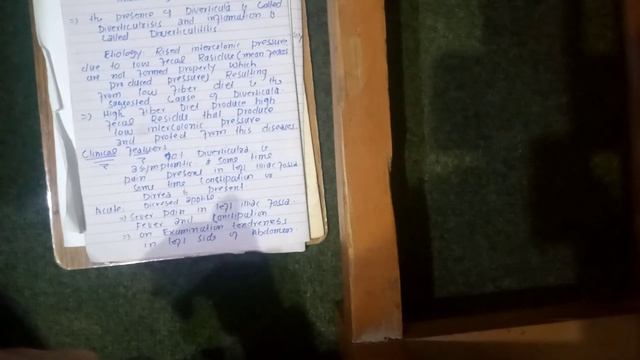 => the presence of Diverticula is Called
Diverticulzisis and inflamation is
Called Daverticulitis
Etiology: Rised intercolonic pressure
due to low fecal Rasidue (mean feces
are not formed properly which
produced pressure) Resulting
from low fiber diet is the
suggosted Cause of Diverticala.
=> High Fiber Diet produce high
fecal Residue that produce
low intercolonic pressure
and protect from this diseases
Clinical features
Diverticula is
asymptomtic & some time
pain present in left iliac fossa
some time Constipation or
Dirrea is present
Acute.
=> Sever pain in left iliac fossa.
Fever and Constipation
=> on Examination tendreness
in left side of Abdomen.